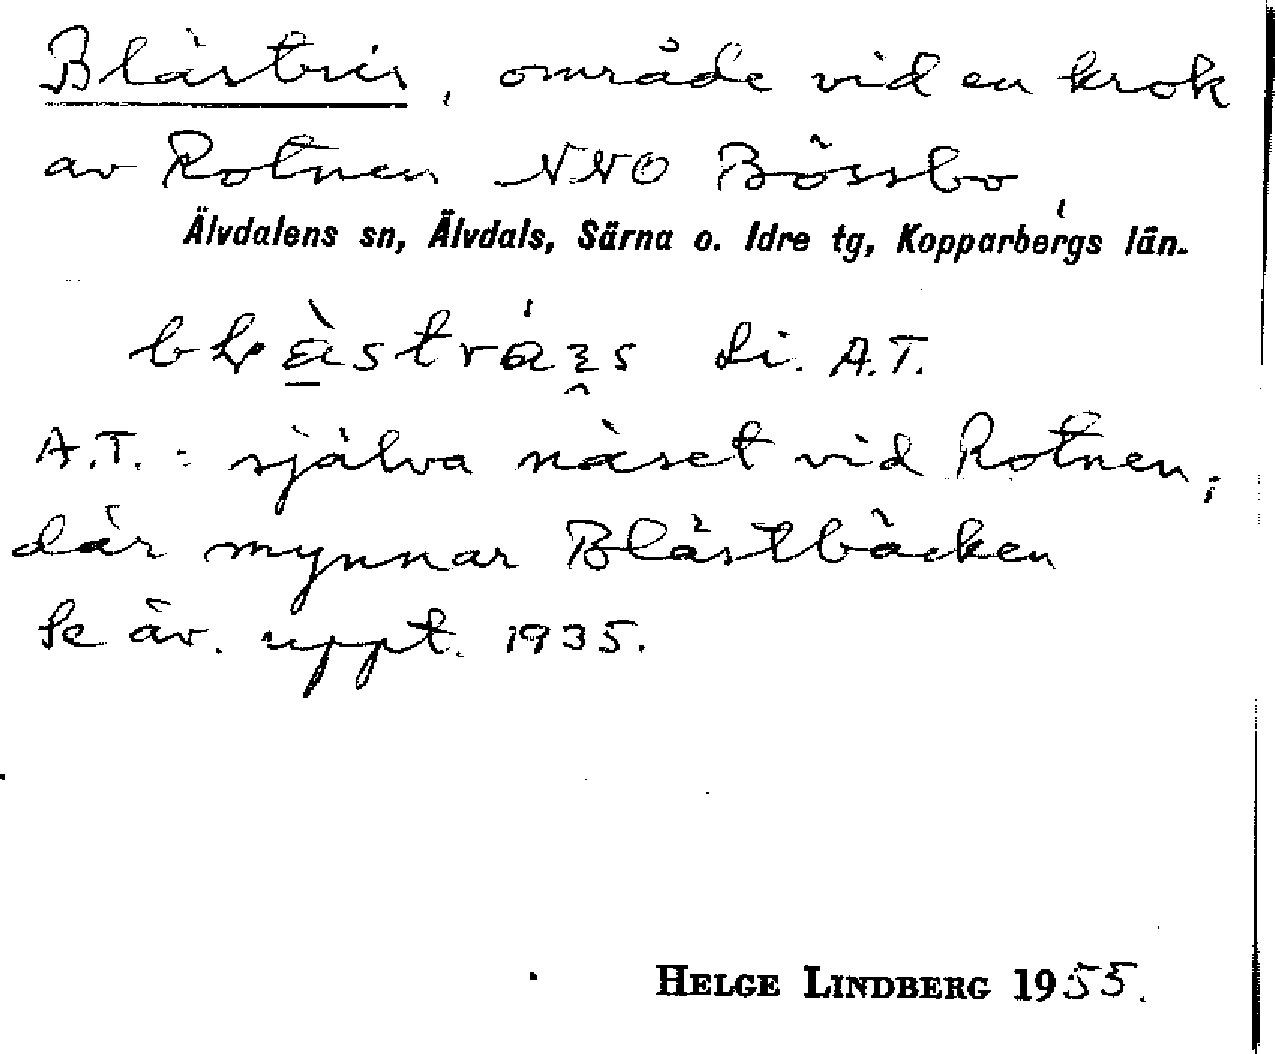 Blästris, område vid en krok
av Rotnen NNO Bössbo,
Älvdalens sn, Älvdals, Särna o. Idre tg, Kopparbergs län.
Li. A.T.
A.T.: själva näset vid Rotnen,
där mynnar Blästbäcken
Se äv. uppt. 1935.
HELGE LINDBERG 1955.